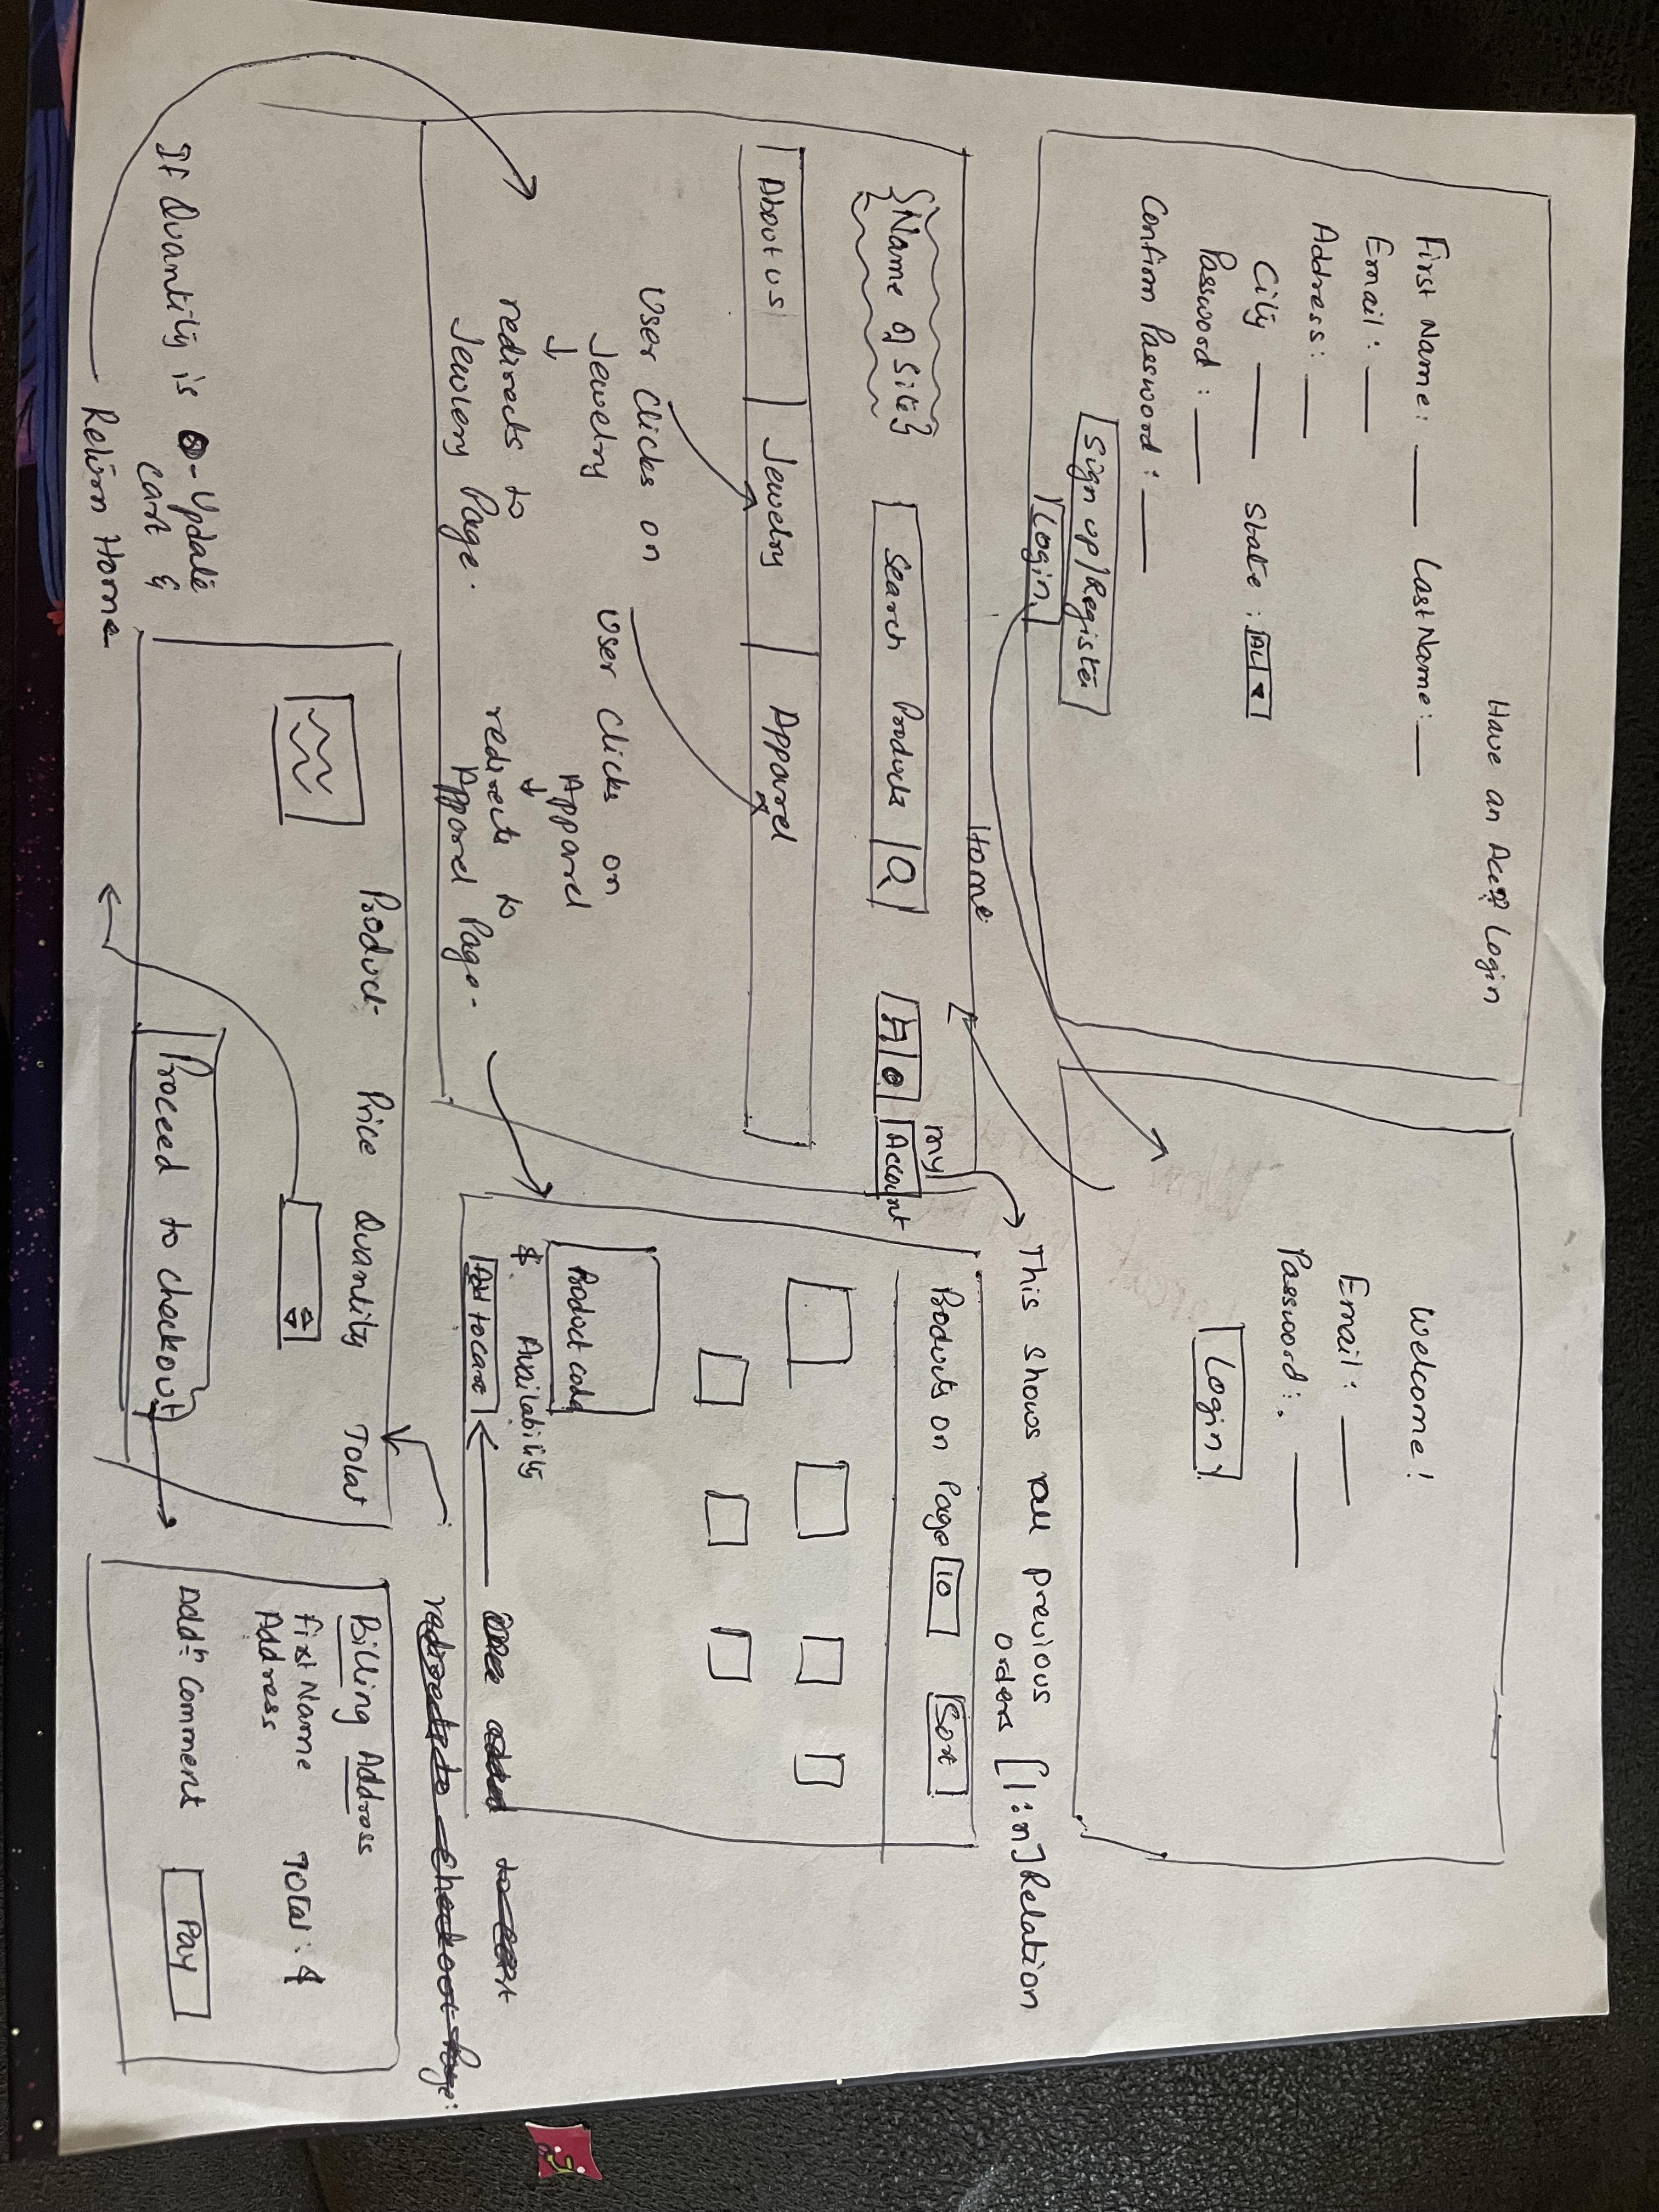 Have an Acc? Login
First Name: ____ Last Name: ___
Email : ___
Address: ___
City ____ State : AL
Password : ___
Confirm Password : ____
Sign up/Register
Login
Welcome !
Email : ____
Password : ____
Login
This shows all previous
orders [1:n] Relation
Home
{Name of Site}
Search Products
my
Account
About us
Jewelry
Apparel
User Clicks on
Jewelry
↓
redirects to
Jewlery Page.
User Clicks on
Apparel
↓
redirects to
Apparel Page.
Products on Page 10
Sort
Product code
$ Availability
Add to cart
Once added to cart
redirects to checkout Page:
Product Price Quantity Total
Proceed to checkout
If Quantity is 0 - Update
cart &
Return Home
Billing Address
First Name
Address
Total : $
Addn Comment
Pay